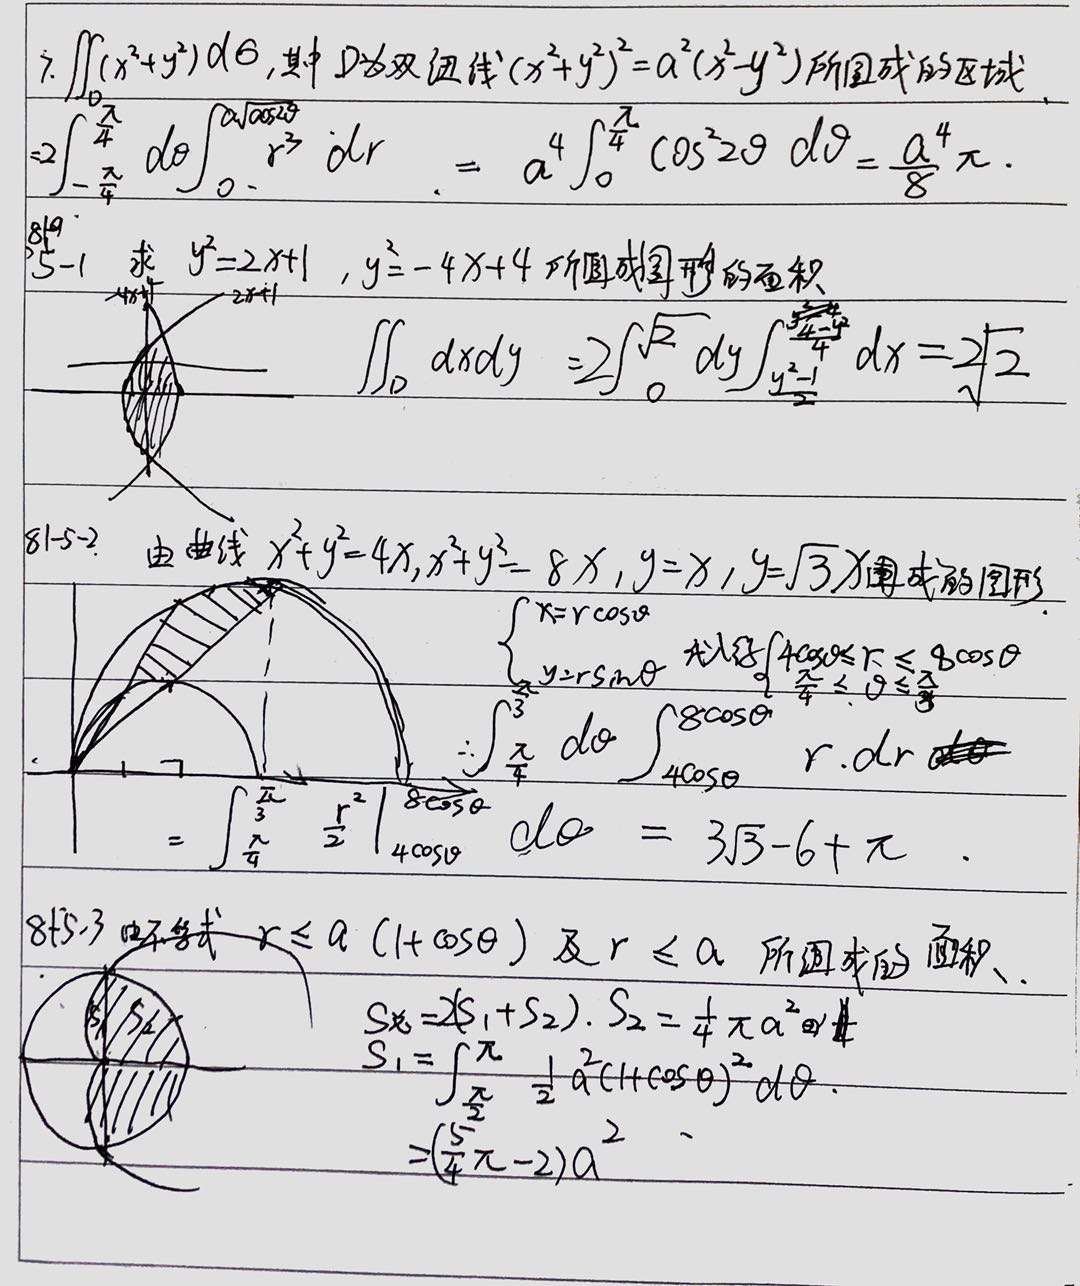 7. ∬_D (x²+y²) dσ, 其中 D为双纽线 (x²+y²)²=a²(x²-y²) 所围成的区域.
=2∫_{-π/4}^{π/4} dθ ∫_0^{a√cos2θ} r³ dr = a⁴ ∫_0^{π/4} cos²2θ dθ = a⁴/8 π.
5-1 求 y²=2x+1, y²=-4x+4 所围成图形的面积
-4x+4 2x+1
∬_D dxdy =2∫_0^{√2} dy ∫_{(y²-1)/2}^{(4-y²)/4} dx = 2√2
81-5-2. 由曲线 x²+y²=4x, x²+y²=8x, y=x, y=√3x围成的图形.
{ x=rcosθ
y=rsinθ 代入得 { 4cosθ≤r≤8cosθ
π/4≤θ≤π/3
∴∫_{π/4}^{π/3} dθ ∫_{4cosθ}^{8cosθ} r·dr
= ∫_{π/4}^{π/3} r²/2 |_{4cosθ}^{8cosθ} dθ = 3√3-6+π.
8-5-3 由不等式 r≤a(1+cosθ) 及 r≤a 所围成的面积.
S₁ S₂
S总=2(S₁+S₂). S₂=1/4 πa²
S₁=∫_{π/2}^{π} 1/2 a²(1+cosθ)² dθ.
=(5/4 π-2)a²